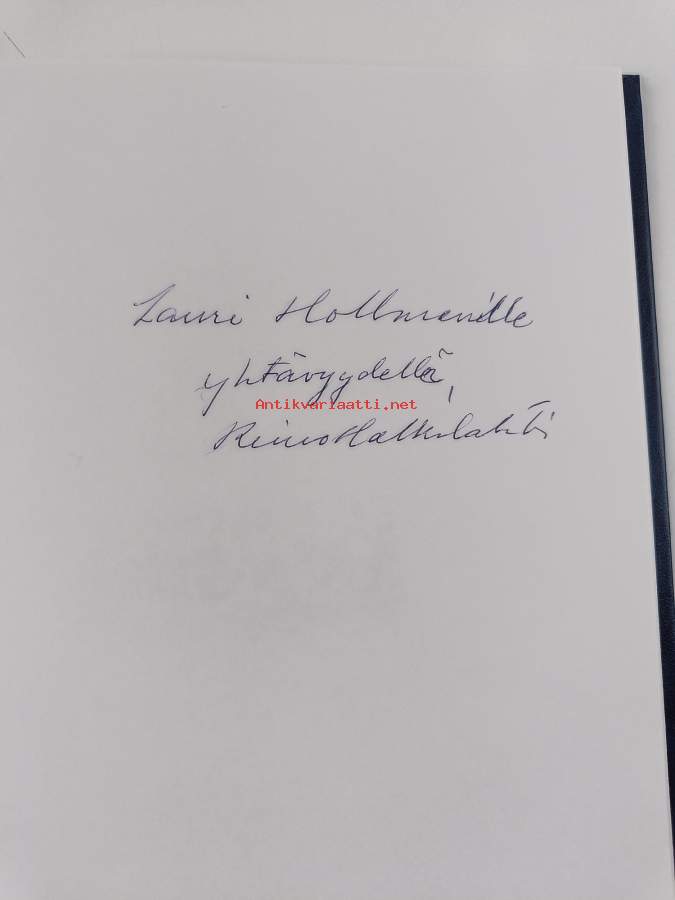 Lauri Hollmenille
ystävyydellä,
Antikvariaatti.net
Reino Hallulahti